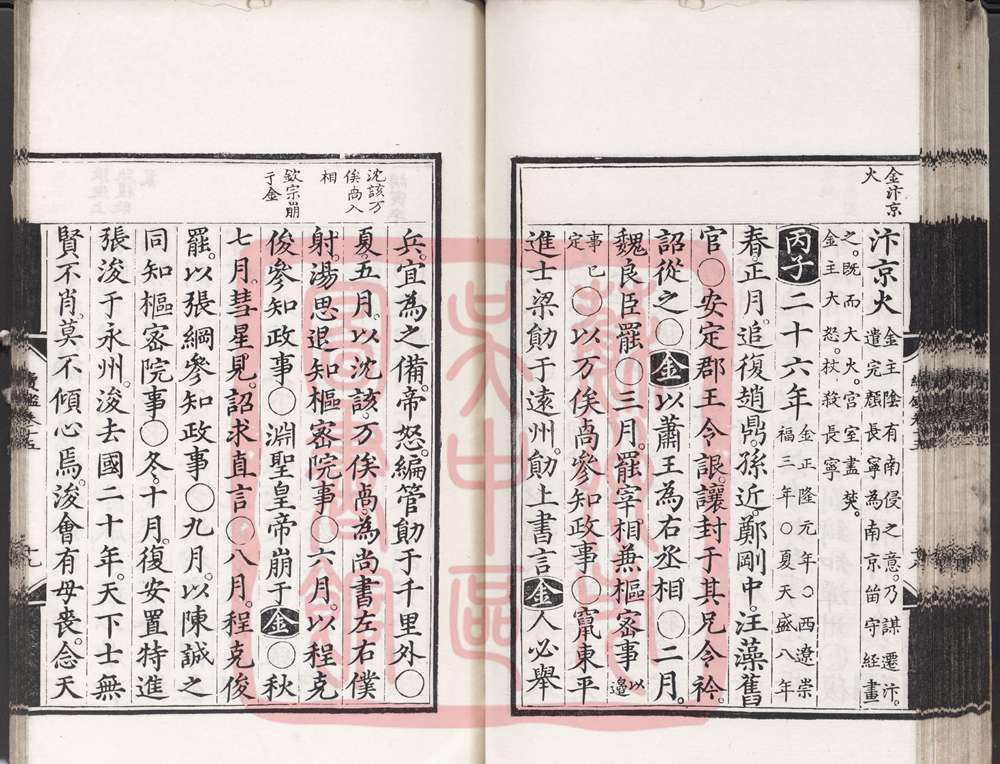 金汴京
火
汴京火金主陰有南侵之意。乃謀遷汴。遣完顏長寧為南京留守經畫
之。既而大火。宮室盡焚。金主大怒。杖殺長寧
丙子二十六年金正隆元年○西遼崇福三年○夏天盛八年
春。正月。追復趙鼎。孫近。鄭剛中。汪藻舊
官○安定郡王令詪。讓封于其兄令衿。
詔從之○金以蕭王為右丞相○二月。
魏良臣罷○三月。罷宰相兼樞密事以邊
事已定○以万俟卨參知政事○竄東平
進士梁勛于遠州。勛上書言金人必舉
沈該万
俟卨入
相
欽宗崩
于金
兵。宜為之備。帝怒。編管勛于千里外○
夏。五月。以沈該。万俟卨。為尚書左右僕
射。湯思退知樞密院事○六月。以程克
俊參知政事○淵聖皇帝崩于金○秋
七月。彗星見。詔求直言○八月。程克俊
罷。以張綱參知政事○九月。以陳誠之
同知樞密院事○冬。十月。復安置特進
張浚于永州。浚去國二十年。天下士無
賢不肖。莫不傾心焉。浚會有母喪。念天